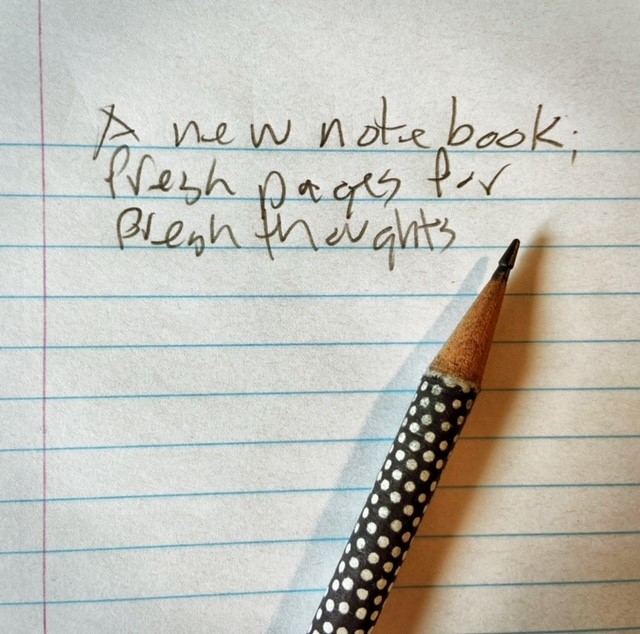 A new notebook;
fresh pages for
fresh thoughts